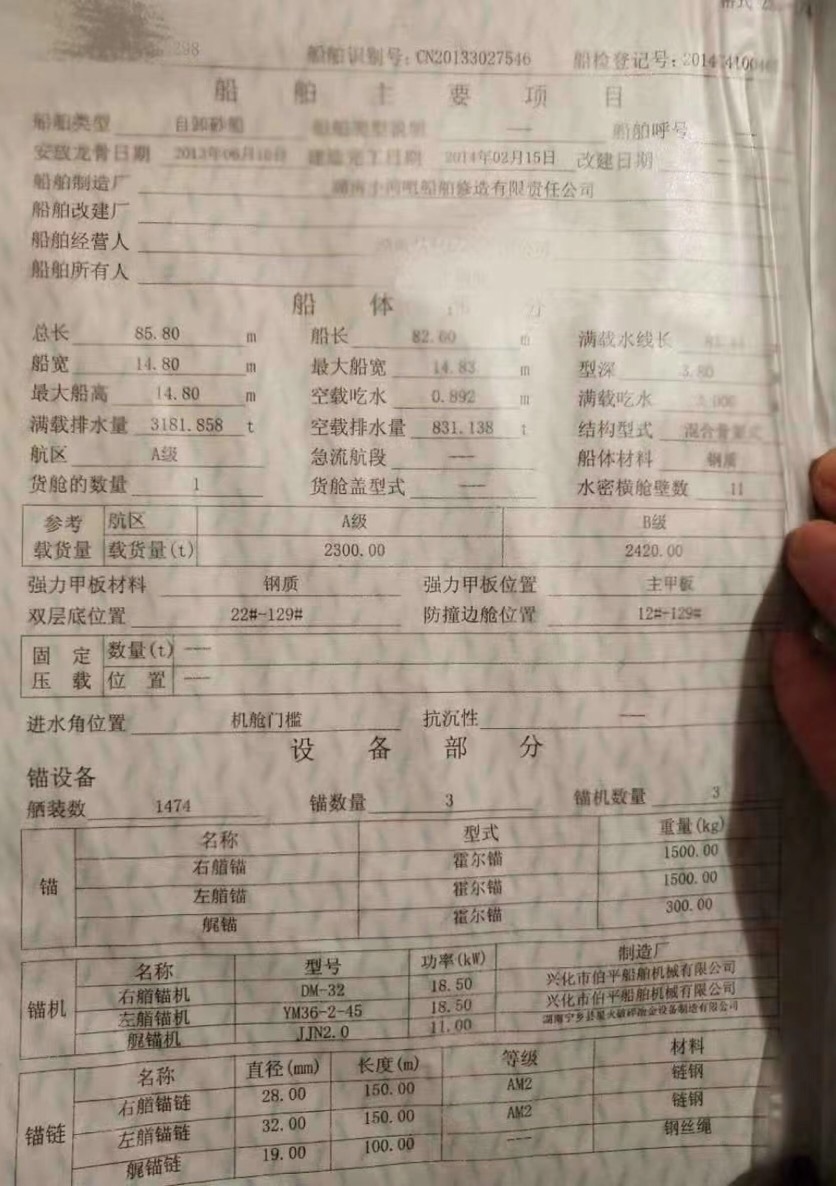 船舶识别号：CN20133027546 船检登记号：
船舶主要项目
船舶类型 自卸砂船 船舶类型说明 --- 船舶呼号 ---
安放龙骨日期 建造完工日期 2014年02月15日 改建日期 ---
船舶制造厂 船舶修造有限责任公司
船舶改建厂
船舶经营人
船舶所有人
船体部分
总长 85.80 m 船长 82.60 m 满载水线长
船宽 14.80 m 最大船宽 14.83 m 型深 3.80
最大船高 14.80 m 空载吃水 0.892 m 满载吃水
满载排水量 3181.858 t 空载排水量 831.138 t 结构型式 混合骨架式
航区 A级 急流航段 --- 船体材料 钢质
货舱的数量 1 货舱盖型式 --- 水密横舱壁数 11
参考载货量 航区 A级 B级
载货量(t) 2300.00 2420.00
强力甲板材料 钢质 强力甲板位置 主甲板
双层底位置 22#-129# 防撞边舱位置 12#-129#
固定压载 数量(t) ---
位置 ---
进水角位置 机舱门槛 抗沉性 ---
设备部分
锚设备
舾装数 1474 锚数量 3 锚机数量 3
锚 名称 型式 重量(kg)
右艏锚 霍尔锚 1500.00
左艏锚 霍尔锚 1500.00
艉锚 霍尔锚 300.00
锚机 名称 型号 功率(kW) 制造厂
右艏锚机 DM-32 18.50 兴化市伯平船舶机械有限公司
左艏锚机 YM36-2-45 18.50 兴化市伯平船舶机械有限公司
艉锚机 JJN2.0 11.00 湖南宁乡县星火破碎冶金设备制造有限公司
锚链 名称 直径(mm) 长度(m) 等级 材料
右艏锚链 28.00 150.00 AM2 链钢
左艏锚链 32.00 150.00 AM2 链钢
艉锚链 19.00 100.00 --- 钢丝绳